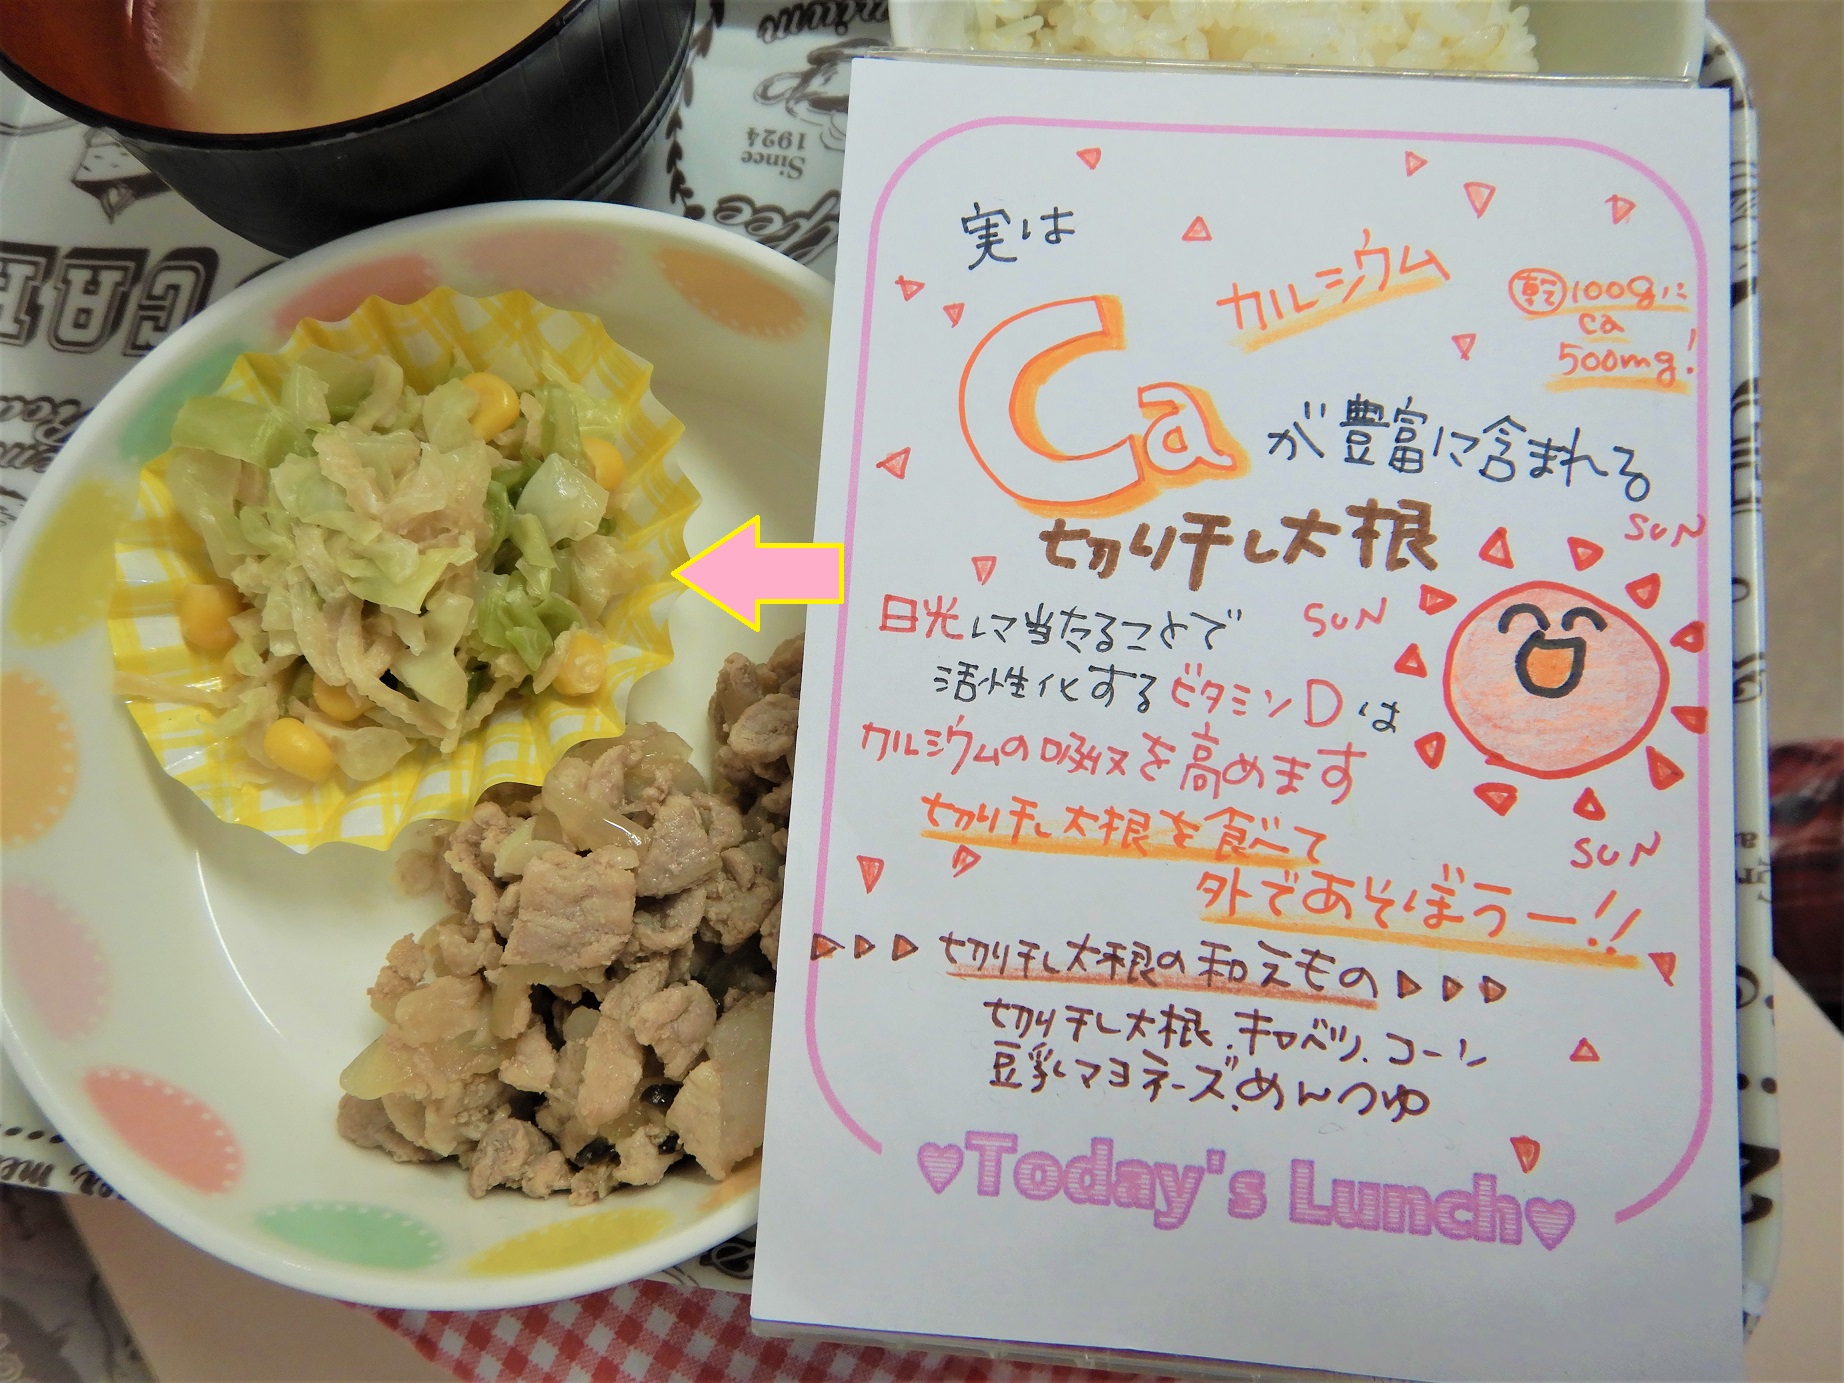 実は
カルシウム
乾100gに
ca
500mg!
Ca
が豊富に含まれる
切り干し大根
SUN
日光に当たることで
SUN
活性化するビタミンDは
カルシウムの吸収を高めます
切り干し大根を食べて
SUN
外であそぼうー!!
切り干し大根の和えもの
切り干し大根、キャベツ、コーン
豆乳マヨネーズ、めんつゆ
♥Today's Lunch♥
Since
1924